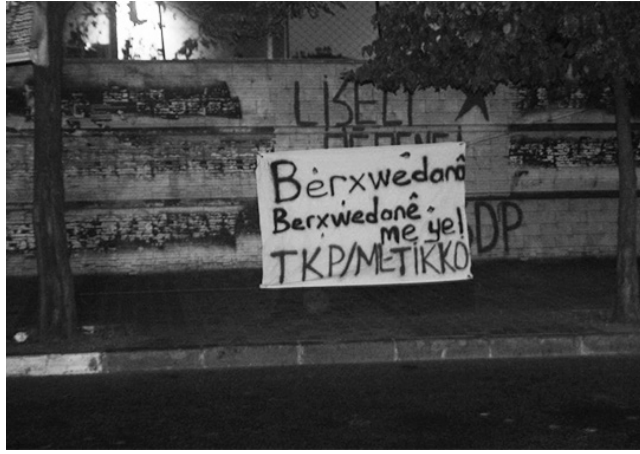 LİSELİ
Bèrxwèdanê
Berxwedanê
me ye!
TKP/ML-TİKKO
DP